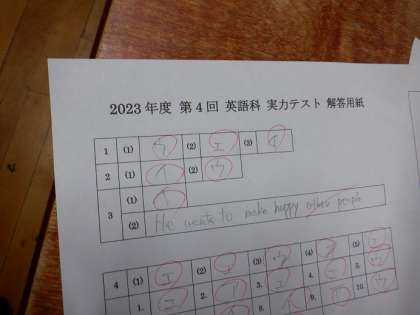 2023 年度 第4回 英語科 実力テスト 解答用紙
1 (1) ウ (2) エ (3) イ
2 (1) イ (2) ウ
3 (1) イ
(2) He wants to make happy other people
4 (1) エ (2) (3) ウ (4) (5)
1. 2. イ 3. エ 4. 5. ウ
8. イ 9. 10. ウ